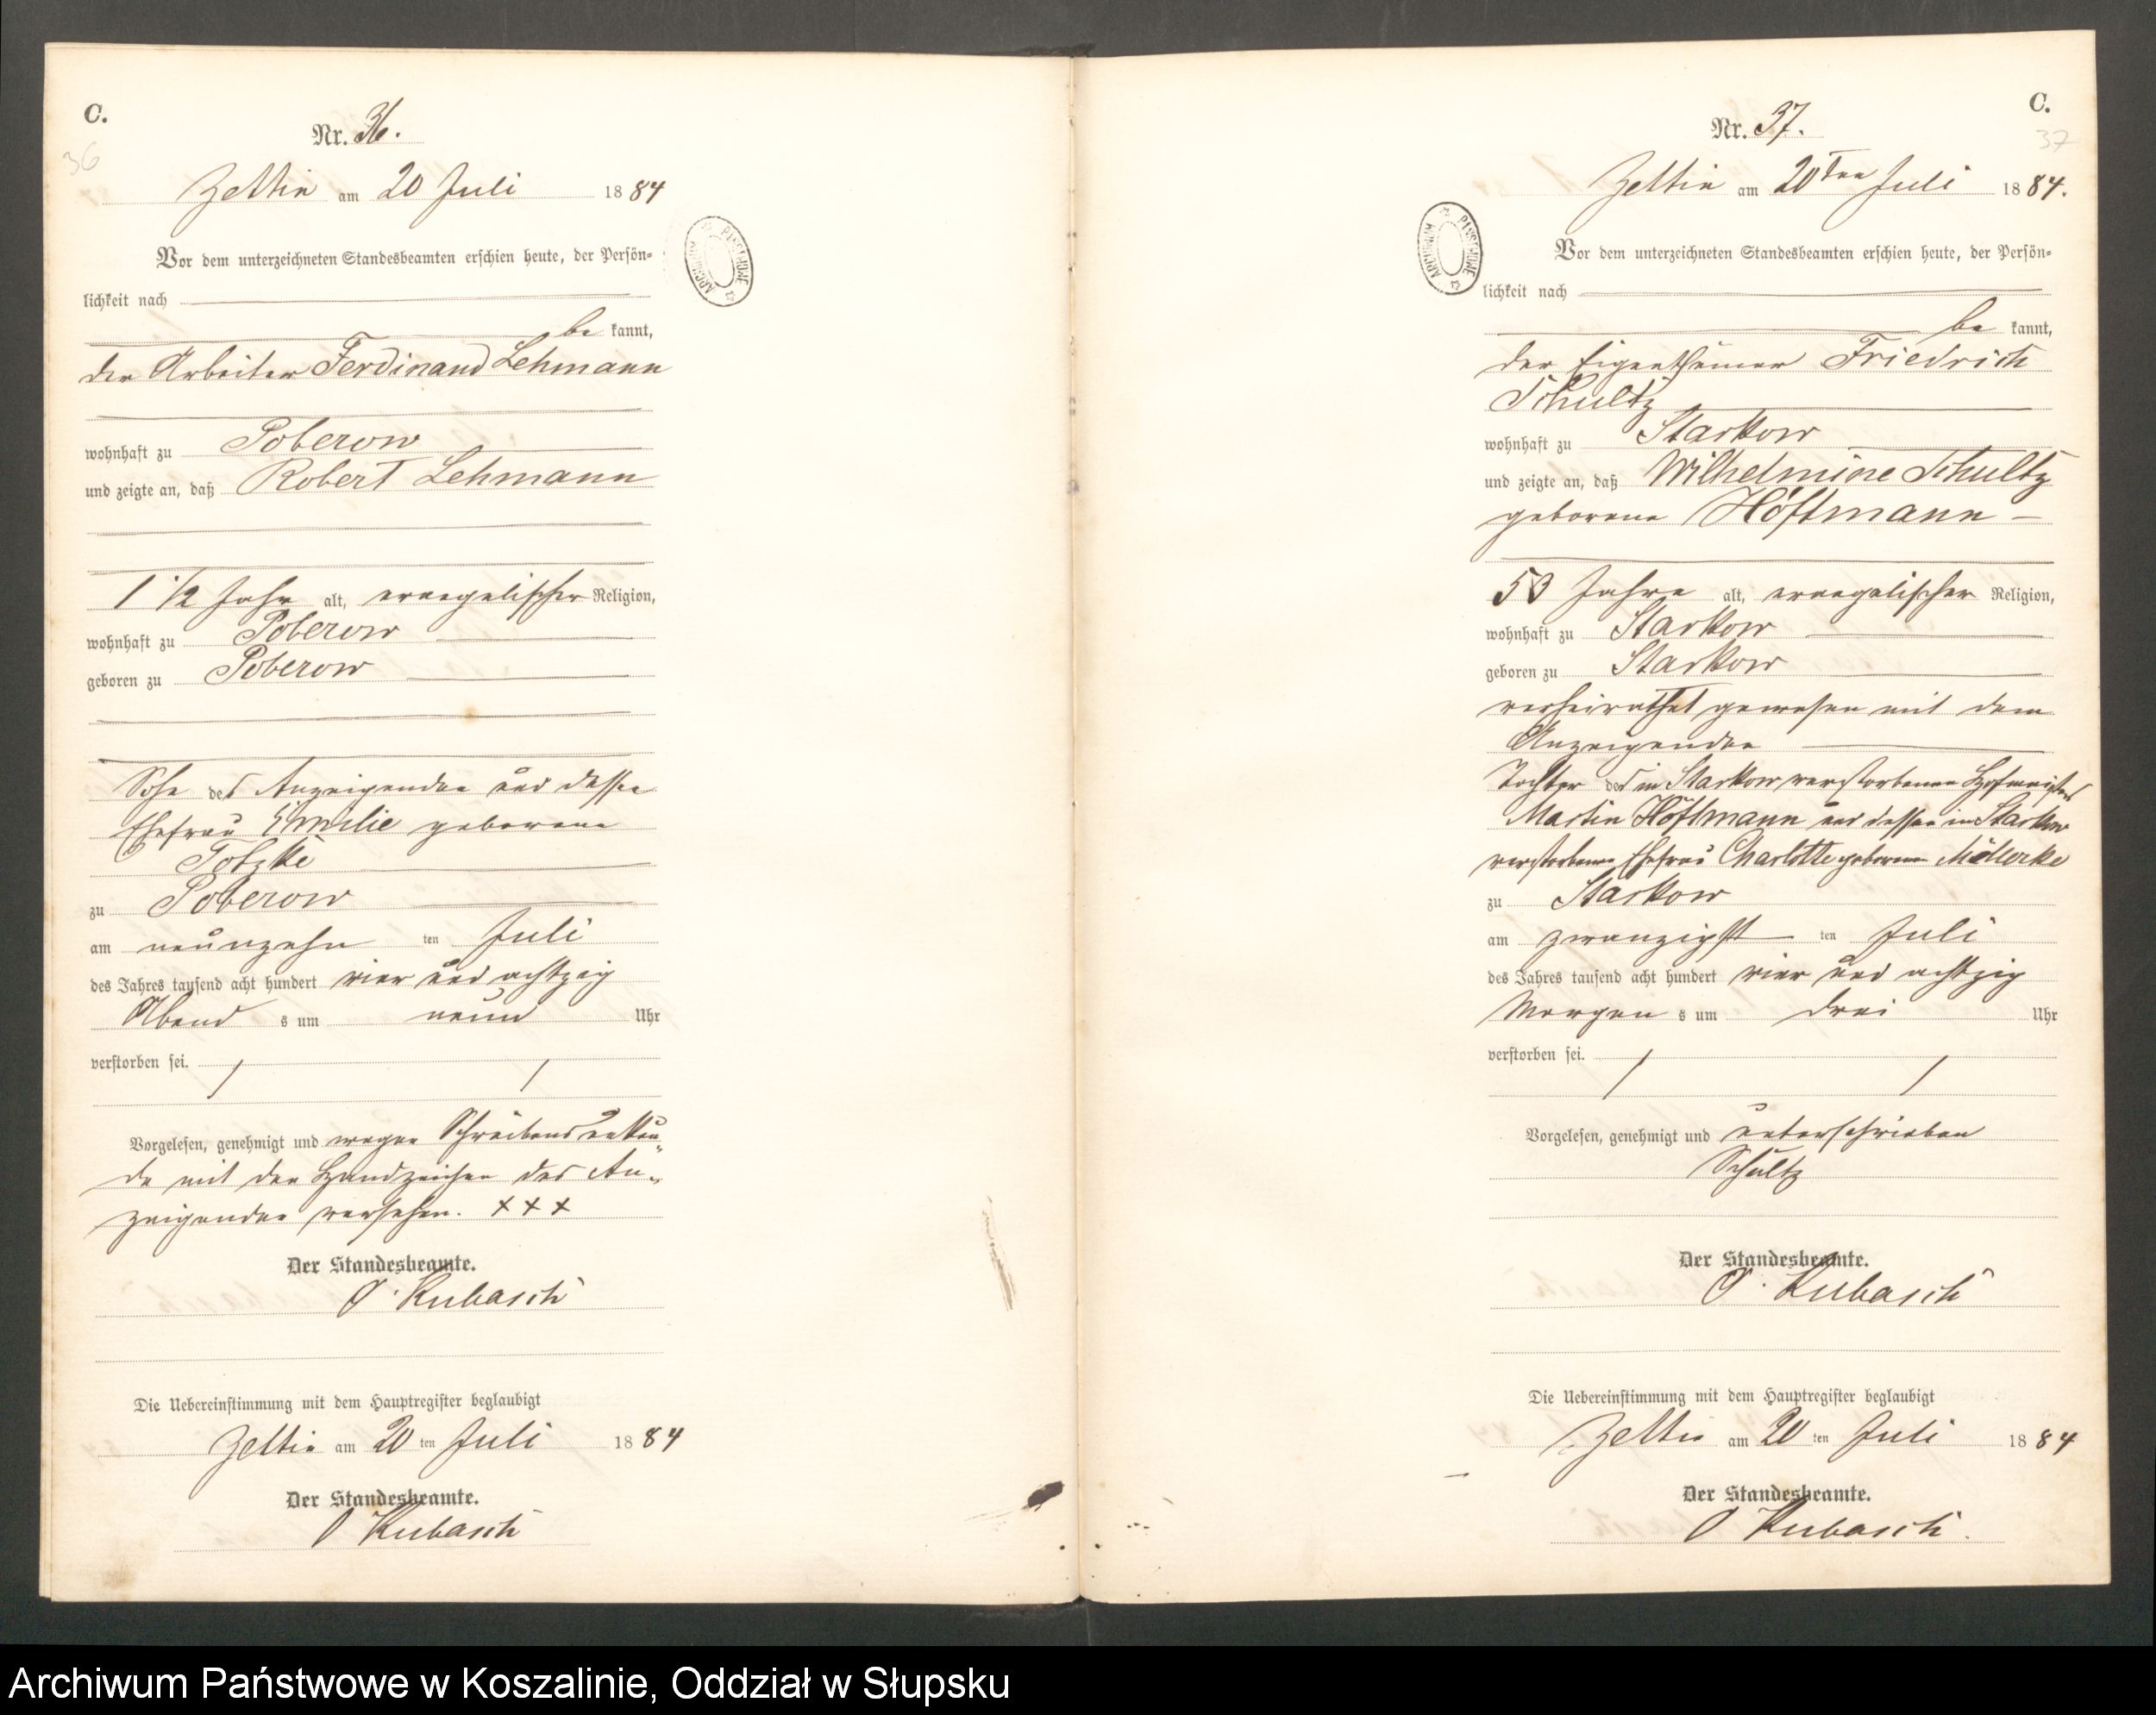 C.
36
Nr. 36.
Zettin am 20 Juli 1884
Vor dem unterzeichneten Standesbeamten erschien heute, der Persön-
lichkeit nach
be kannt,
der Arbeiter Ferdinand Lehmann
wohnhaft zu Poberow
und zeigte an, daß Robert Lehmann
1 1/2 Jahr alt, evangelischer Religion,
wohnhaft zu Poberow
geboren zu Poberow
Sohn des Anzeigenden und dessen
Ehefrau Emilie geborene
Totzke
zu Poberow
am neunzehn ten Juli
des Jahres tausend acht hundert vier und achtzig
Abend s um neun Uhr
verstorben sei.
Vorgelesen, genehmigt und wegen Schreibensunkun-
de mit den Handzeichen des An-
zeigenden versehen. +++
Der Standesbeamte.
O. Kubasch
Die Uebereinstimmung mit dem Hauptregister beglaubigt
Zettin am 20 ten Juli 1884
Der Standesbeamte.
O Kubasch
ARCHIWUM PAŃSTWOWE
C.
37
Nr. 37.
Zettin am 20ten Juli 1884.
Vor dem unterzeichneten Standesbeamten erschien heute, der Persön-
lichkeit nach
be kannt,
der Eigenthümer Friedrich
Schultz
wohnhaft zu Starkow
und zeigte an, daß Wilhelmine Schultz
geborene Höftmann
53 Jahre alt, evangelischer Religion,
wohnhaft zu Starkow
geboren zu Starkow
verheirathet gewesen mit dem
Anzeigenden
Tochter des in Starkow verstorbenen Hofmeisters
Martin Höftmann und dessen in Starkow
verstorbenen Ehefrau Charlotte geborene
zu Starkow
am zwanzigst ten Juli
des Jahres tausend acht hundert vier und achtzig
Morgen s um drei Uhr
verstorben sei.
Vorgelesen, genehmigt und unterschrieben
Schultz
Der Standesbeamte.
O. Kubasch
Die Uebereinstimmung mit dem Hauptregister beglaubigt
Zettin am 20 ten Juli 1884
Der Standesbeamte.
O Kubasch.
ARCHIWUM PAŃSTWOWE
Archiwum Państwowe w Koszalinie, Oddział w Słupsku